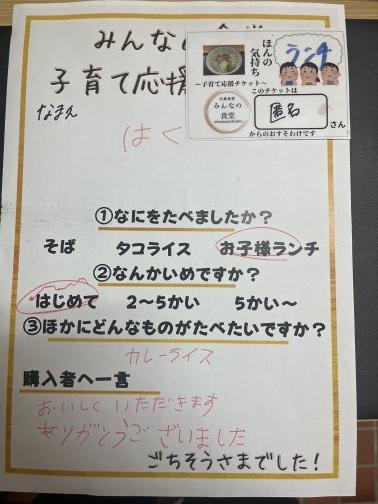 みんなの
子育て応援
なまえ
はく
ほんの
気持ち
ランチ
~子育て応援チケット~
このチケットは
みんなの
食堂
匿名
さん
からのおすそわけです
①なにをたべましたか?
そば タコライス お子様ランチ
②なんかいめですか?
はじめて 2~5かい 5かい~
③ほかにどんなものがたべたいですか?
カレーライス
購入者へ一言
おいしくいただきます
ありがとうございました
ごちそうさまでした!